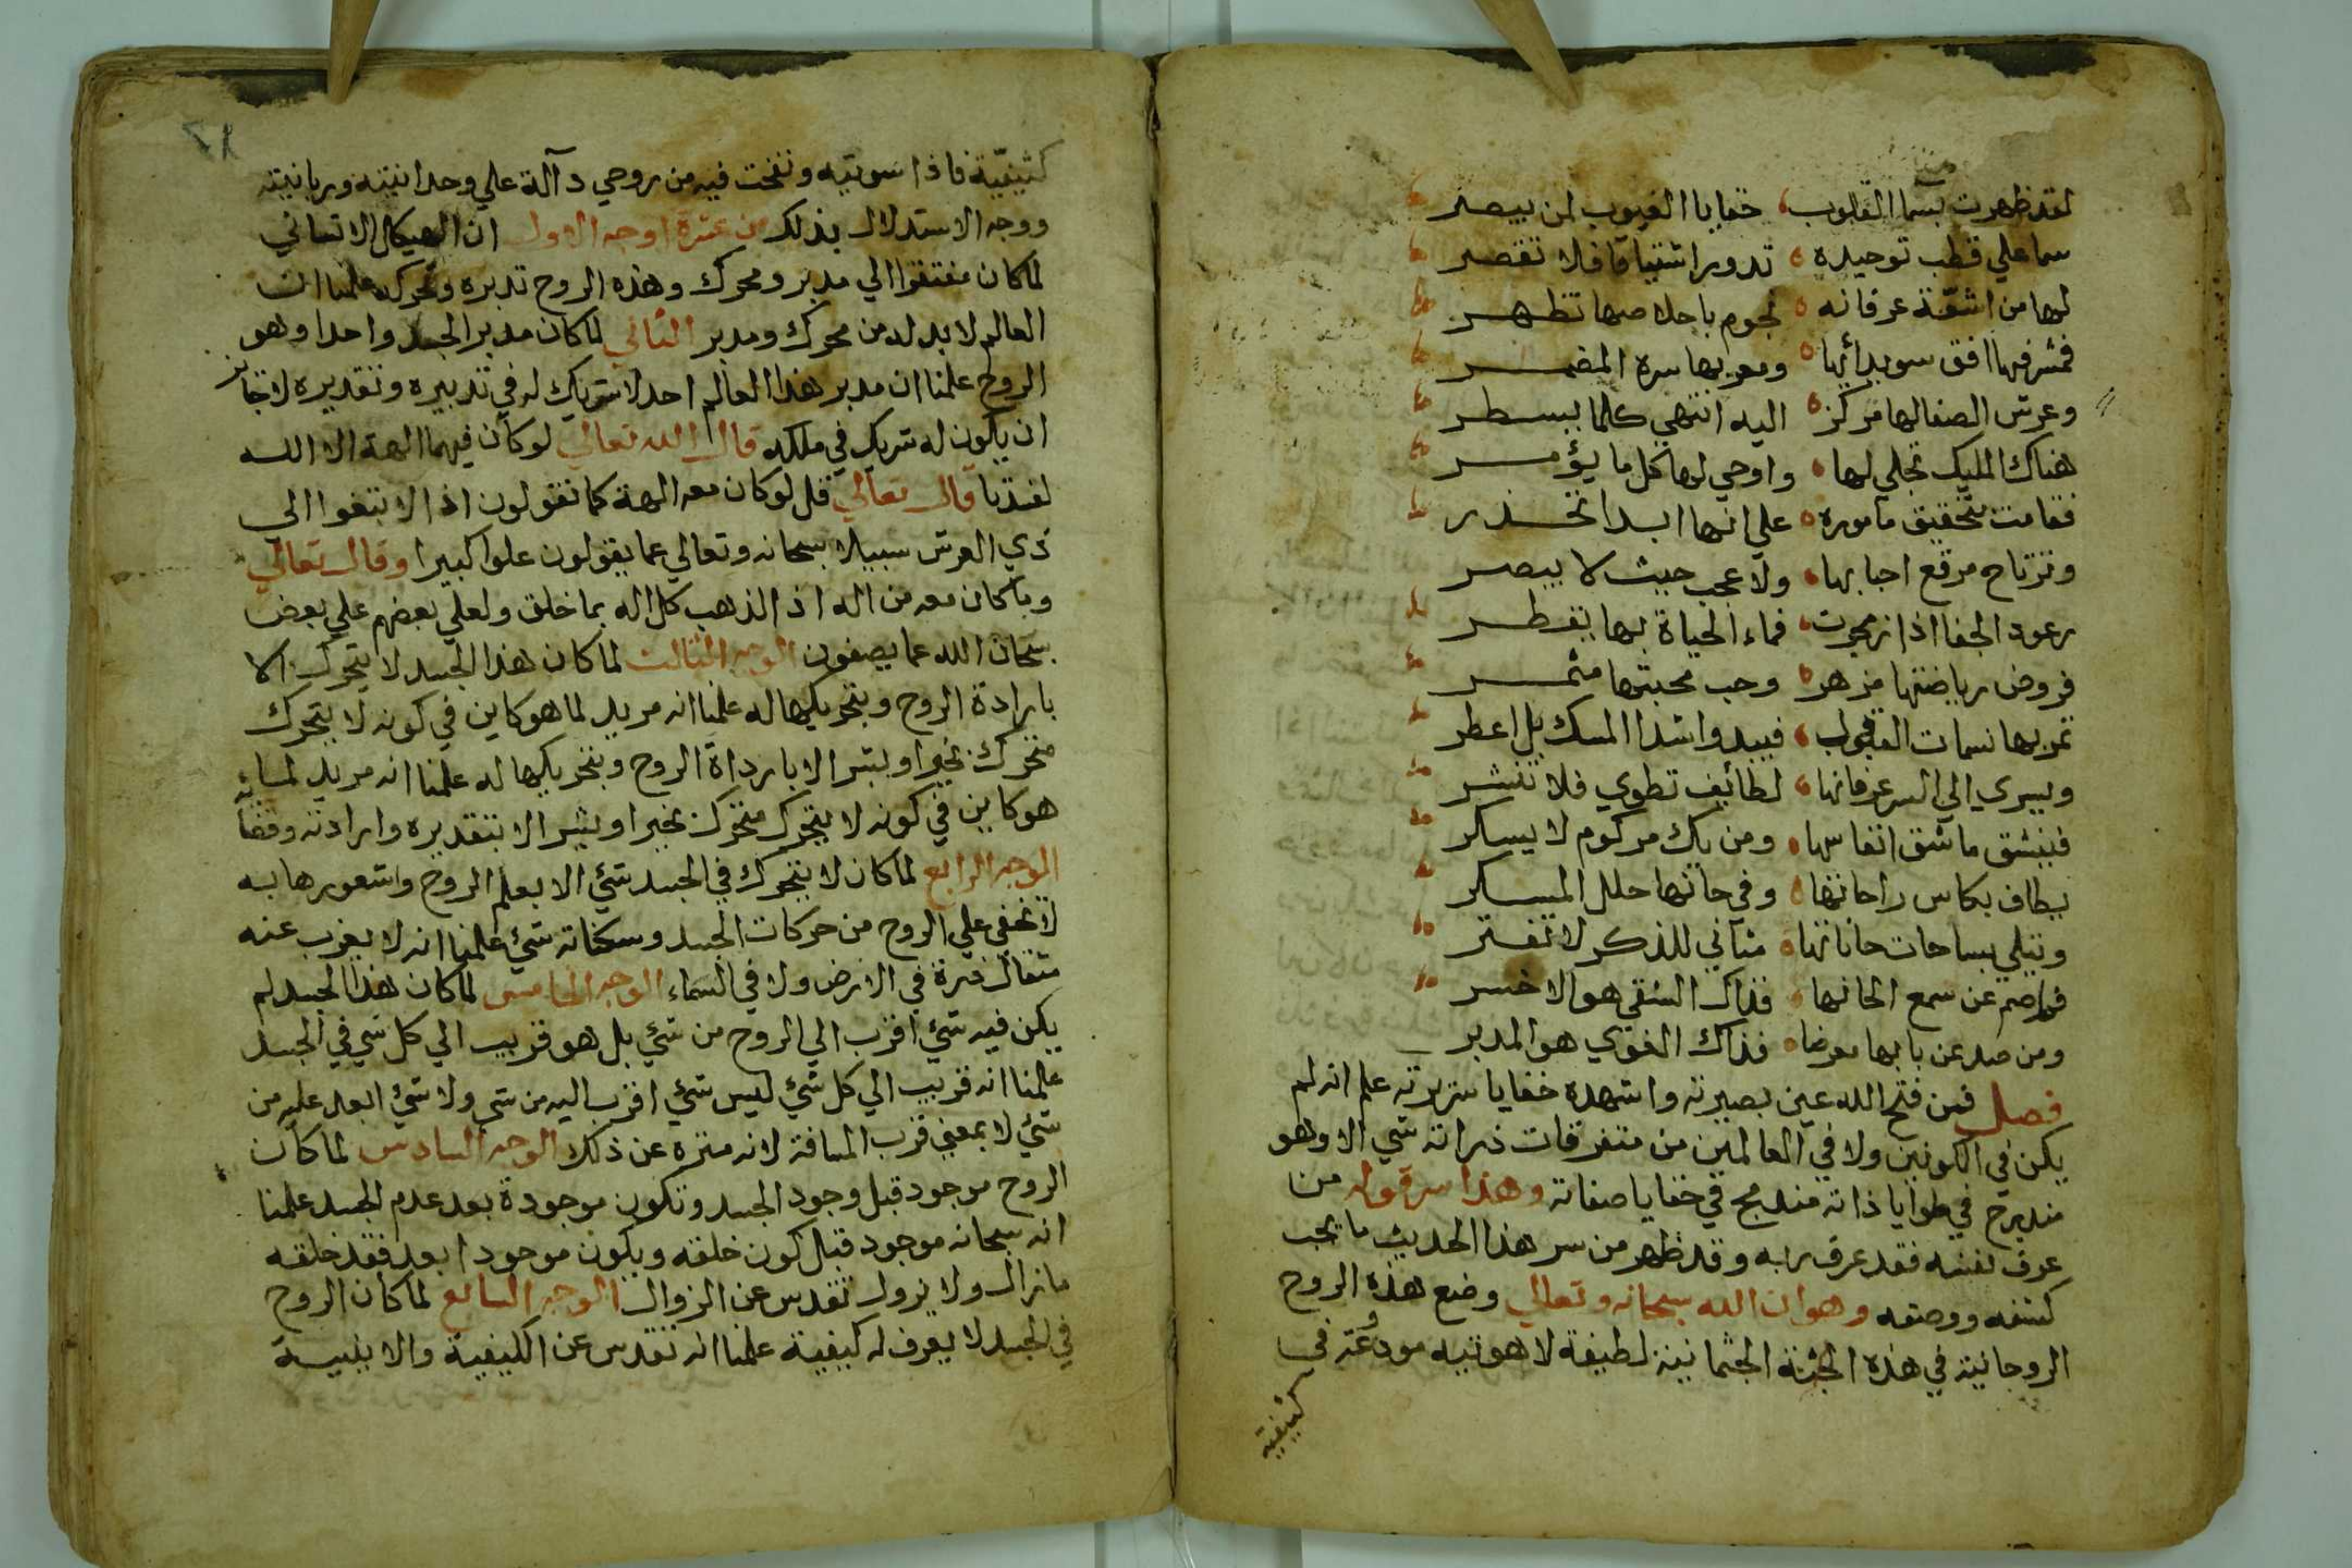 لقد ظهرت بسما القلوب خفايا الغيوب لمن يبصر
سما علي قطب توحيده تدور اشتياقا فلا تقصر
لها من اشعّة عرفانه نجوم باخلاصها تظهر
فمشرفها افق سويدائها ومغربها سره المضمر
وعرش الصفا لها مركز اليه انتهي كلما يسطر
هناك المليك تجلي لها واوحي لها كل ما يؤمر
فقامت بتحقيق ماموره علي انها ابدا تحذر
وترتاح مرقع احبابها ولا عجب حيث لا يبصر
رعود الجفا اذا زمجرت فماء الحياة بها يقطر
فروض رياضتها مزهر وحب محبتها مثمر
تمر بها نسمات القبول فيبدوا شذا المسك بل اعطر
ويسري الي السر عرفانها لطائف تطوي فلا تنشر
فينشق ماشق انفاسها ومن يك مزكوم لا يسكر
يطاف بكاس راحاتها وفي حانها حلل المسكر
وتتلي بساحات حاناتها مثاني للذكر لا تفتر
فمن اصم عن سمع الحانها فذاك الشقي هو الاخسر
ومن صد عن بابها معرضا فذاك الغوي هو المدبر
فصل فمن فتح الله عين بصيرته واشهده خفايا سريرته علم انه لم
يكن في الكونين ولا في العالمين من متفرقات ذراته شي الا وهو
مندرج في طوايا ذاته مندمج في خفايا صفاته وهذا سر قوله من
عرف نفسه فقد عرف ربه وقد ظهر من سر هذا الحديث ما يجب
كشفه ووصفه وهو ان الله سبحانه وتعالي وضع هذه الروح
الروحانية في هذه الجثة الجثمانية لطيفة لاهوتيه مودعة في
كثيفية
كثيفيّة فاذا سويته ونفخت فيه من روحي دآلة علي وحدانيته وربانيته
ووجه الاستدلال بذلك من عشرة اوجه الاول ان الهيكل الانساني
لما كان مفتقرا الي مدبر ومحرك وهذه الروح تدبره وتحركه علمنا ان
العالم لا بد له من محرك ومدبر الثاني لما كان مدبر الجسد واحدا وهو
الروح علمنا ان مدبر هذا العالم احد لا شريك له في تدبيره وتقديره لا جائز
ان يكون له شريك في ملكه قال الله تعالي لو كان فيهما الهة الا الله
لفسدتا قال تعالي قل لو كان معه الهة كما تقولون اذا لابتغوا الي
ذي العرش سبيلا سبحانه وتعالي عما يقولون علوا كبيرا وقال تعالي
وما كان معه من اله اذا لذهب كل اله بما خلق ولعلي بعضهم علي بعض
سبحان الله عما يصفون الوجه الثالث لما كان هذا الجسد لا يتحرك الا
بارادة الروح وبتحريكها له علمنا انه مريد لما هو كاين في كونه لا يتحرك
متحرك بخير او بشر الا بارداة الروح وبتحريكها له علمنا انه مريد لما
هو كاين في كونه لا يتحرك متحرك بخير او بشر الا بتقديره وارادته وقضا
الوجه الرابع لما كان لا يتحرك في الجسد شئ الا بعلم الروح وشعورها به
لا يخفي علي الروح من حركات الجسد وسكناته شئ علمنا انه لا يعزب عنه
مثقال ذرة في الارض ولا في السماء الوجه الخامس لما كان هذا الجسد لم
يكن فيه شئ اقرب الي الروح من شئ بل هو قريب الي كل شي في الجسد
علمنا انه قريب الي كل شئ ليس شئ اقرب اليه من شي ولا شئ ابعد عليه من
شئ لا بمعني قرب المسافة لانه منزه عن ذلك الوجه السادس لما كان
الروح موجود قبل وجود الجسد وتكون موجودة بعد عدم الجسد علمنا
انه سبحانه موجود قبل كون خلقه ويكون موجودا بعد فقد خلقه
مازال ولا يزول تقدس عن الزوال الوجه السابع لما كان الروح
في الجسد لا يعرف له كيفية علمنا انه تقدس عن الكيفية والاينيـة